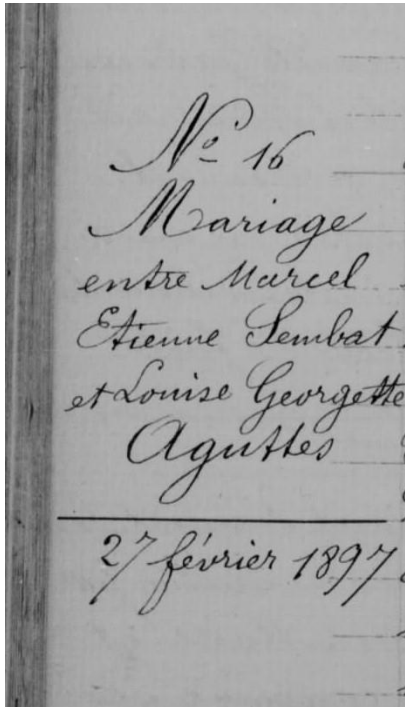 Nº 16
Mariage
entre Marcel
Etienne Sembat
et Louise Georgette
Aguttes
27 février 1897